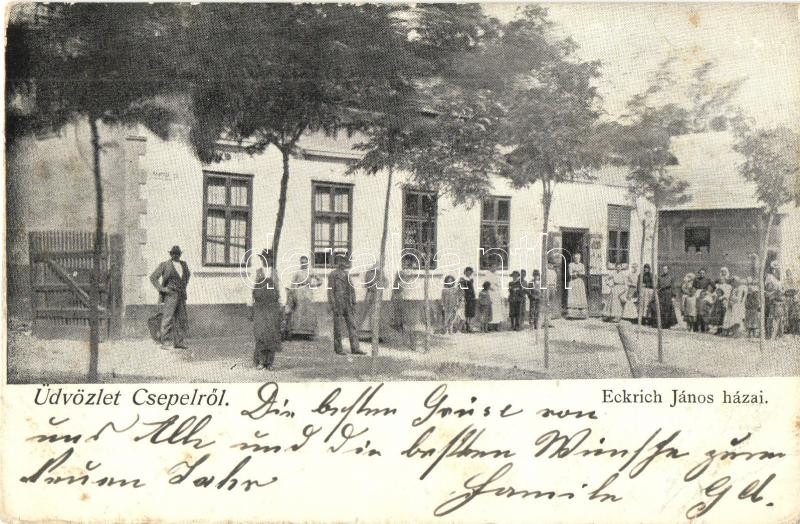 darabanth
Üdvözlet Csepelről.
Eckrich János házai.
Die besten Grüsse von
uns Alle und die besten Wünsche zum
neuen Jahr
Familie